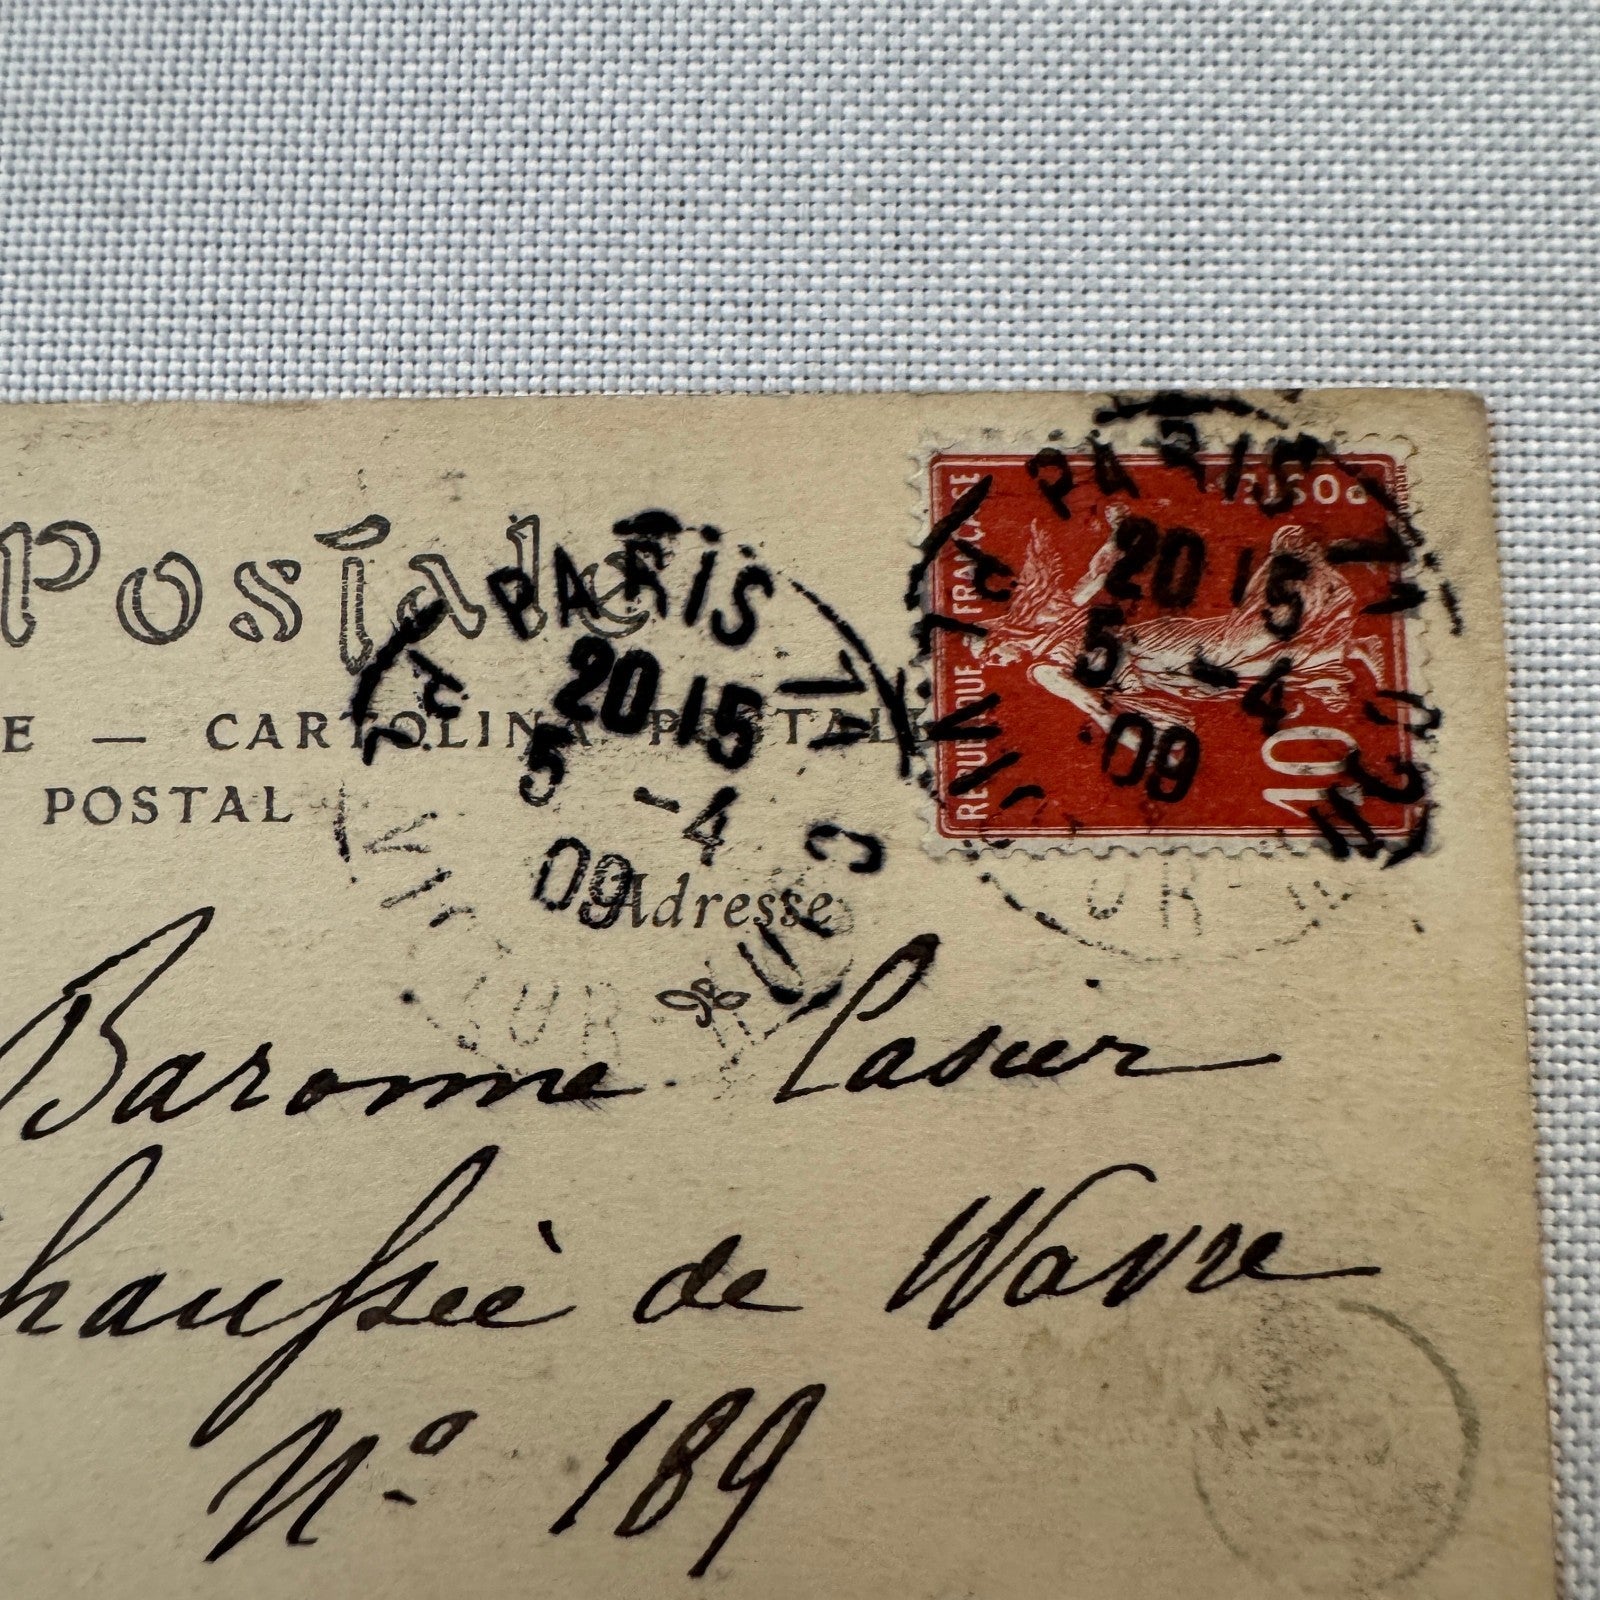 Postale
E — CARTOLINA POSTALE
POSTAL
Adresse
PARIS 11
20 15
5 -4
09
REPUBLIQUE FRANÇAISE
POSTES
10c
PARIS 11
20 15
5 -4
09
Baronne Lasier
Chaussée de Wavre
N° 189